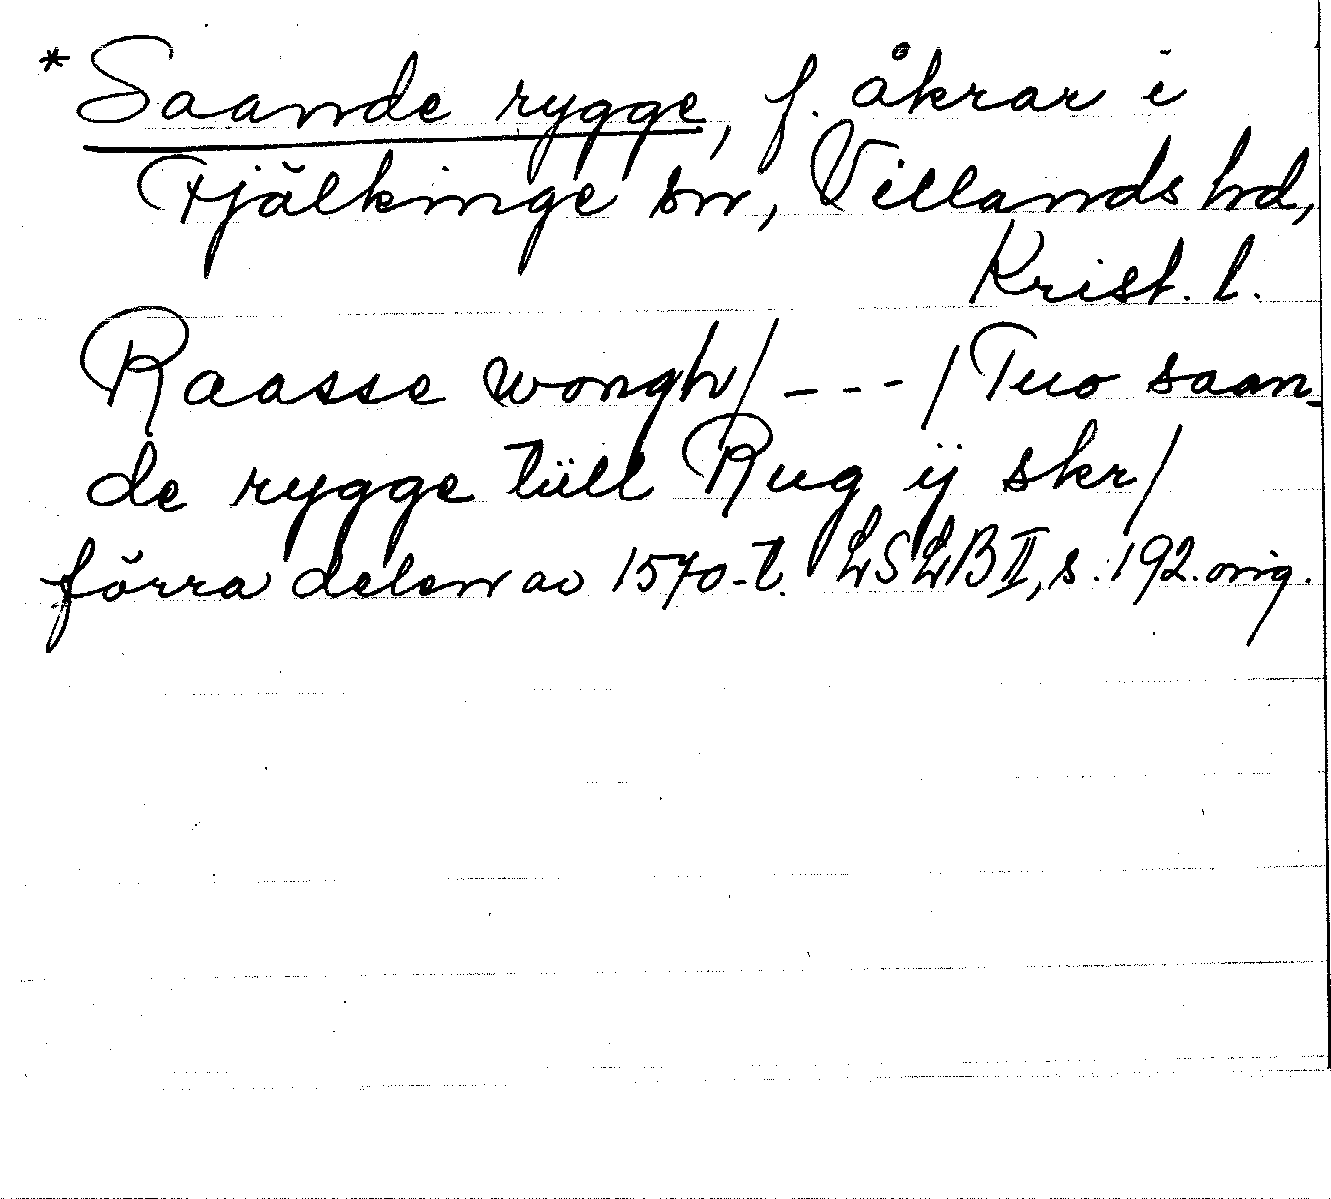 *Saande rygge, f. åkrar i
Fjälkinge sn, Villands hd,
Krist. l.
Raasse wongh/ --- / Tuo saan-
de rygge tüll Rug ij skr/
förra delen av 1570-t. LSLB II, s. 192. orig.